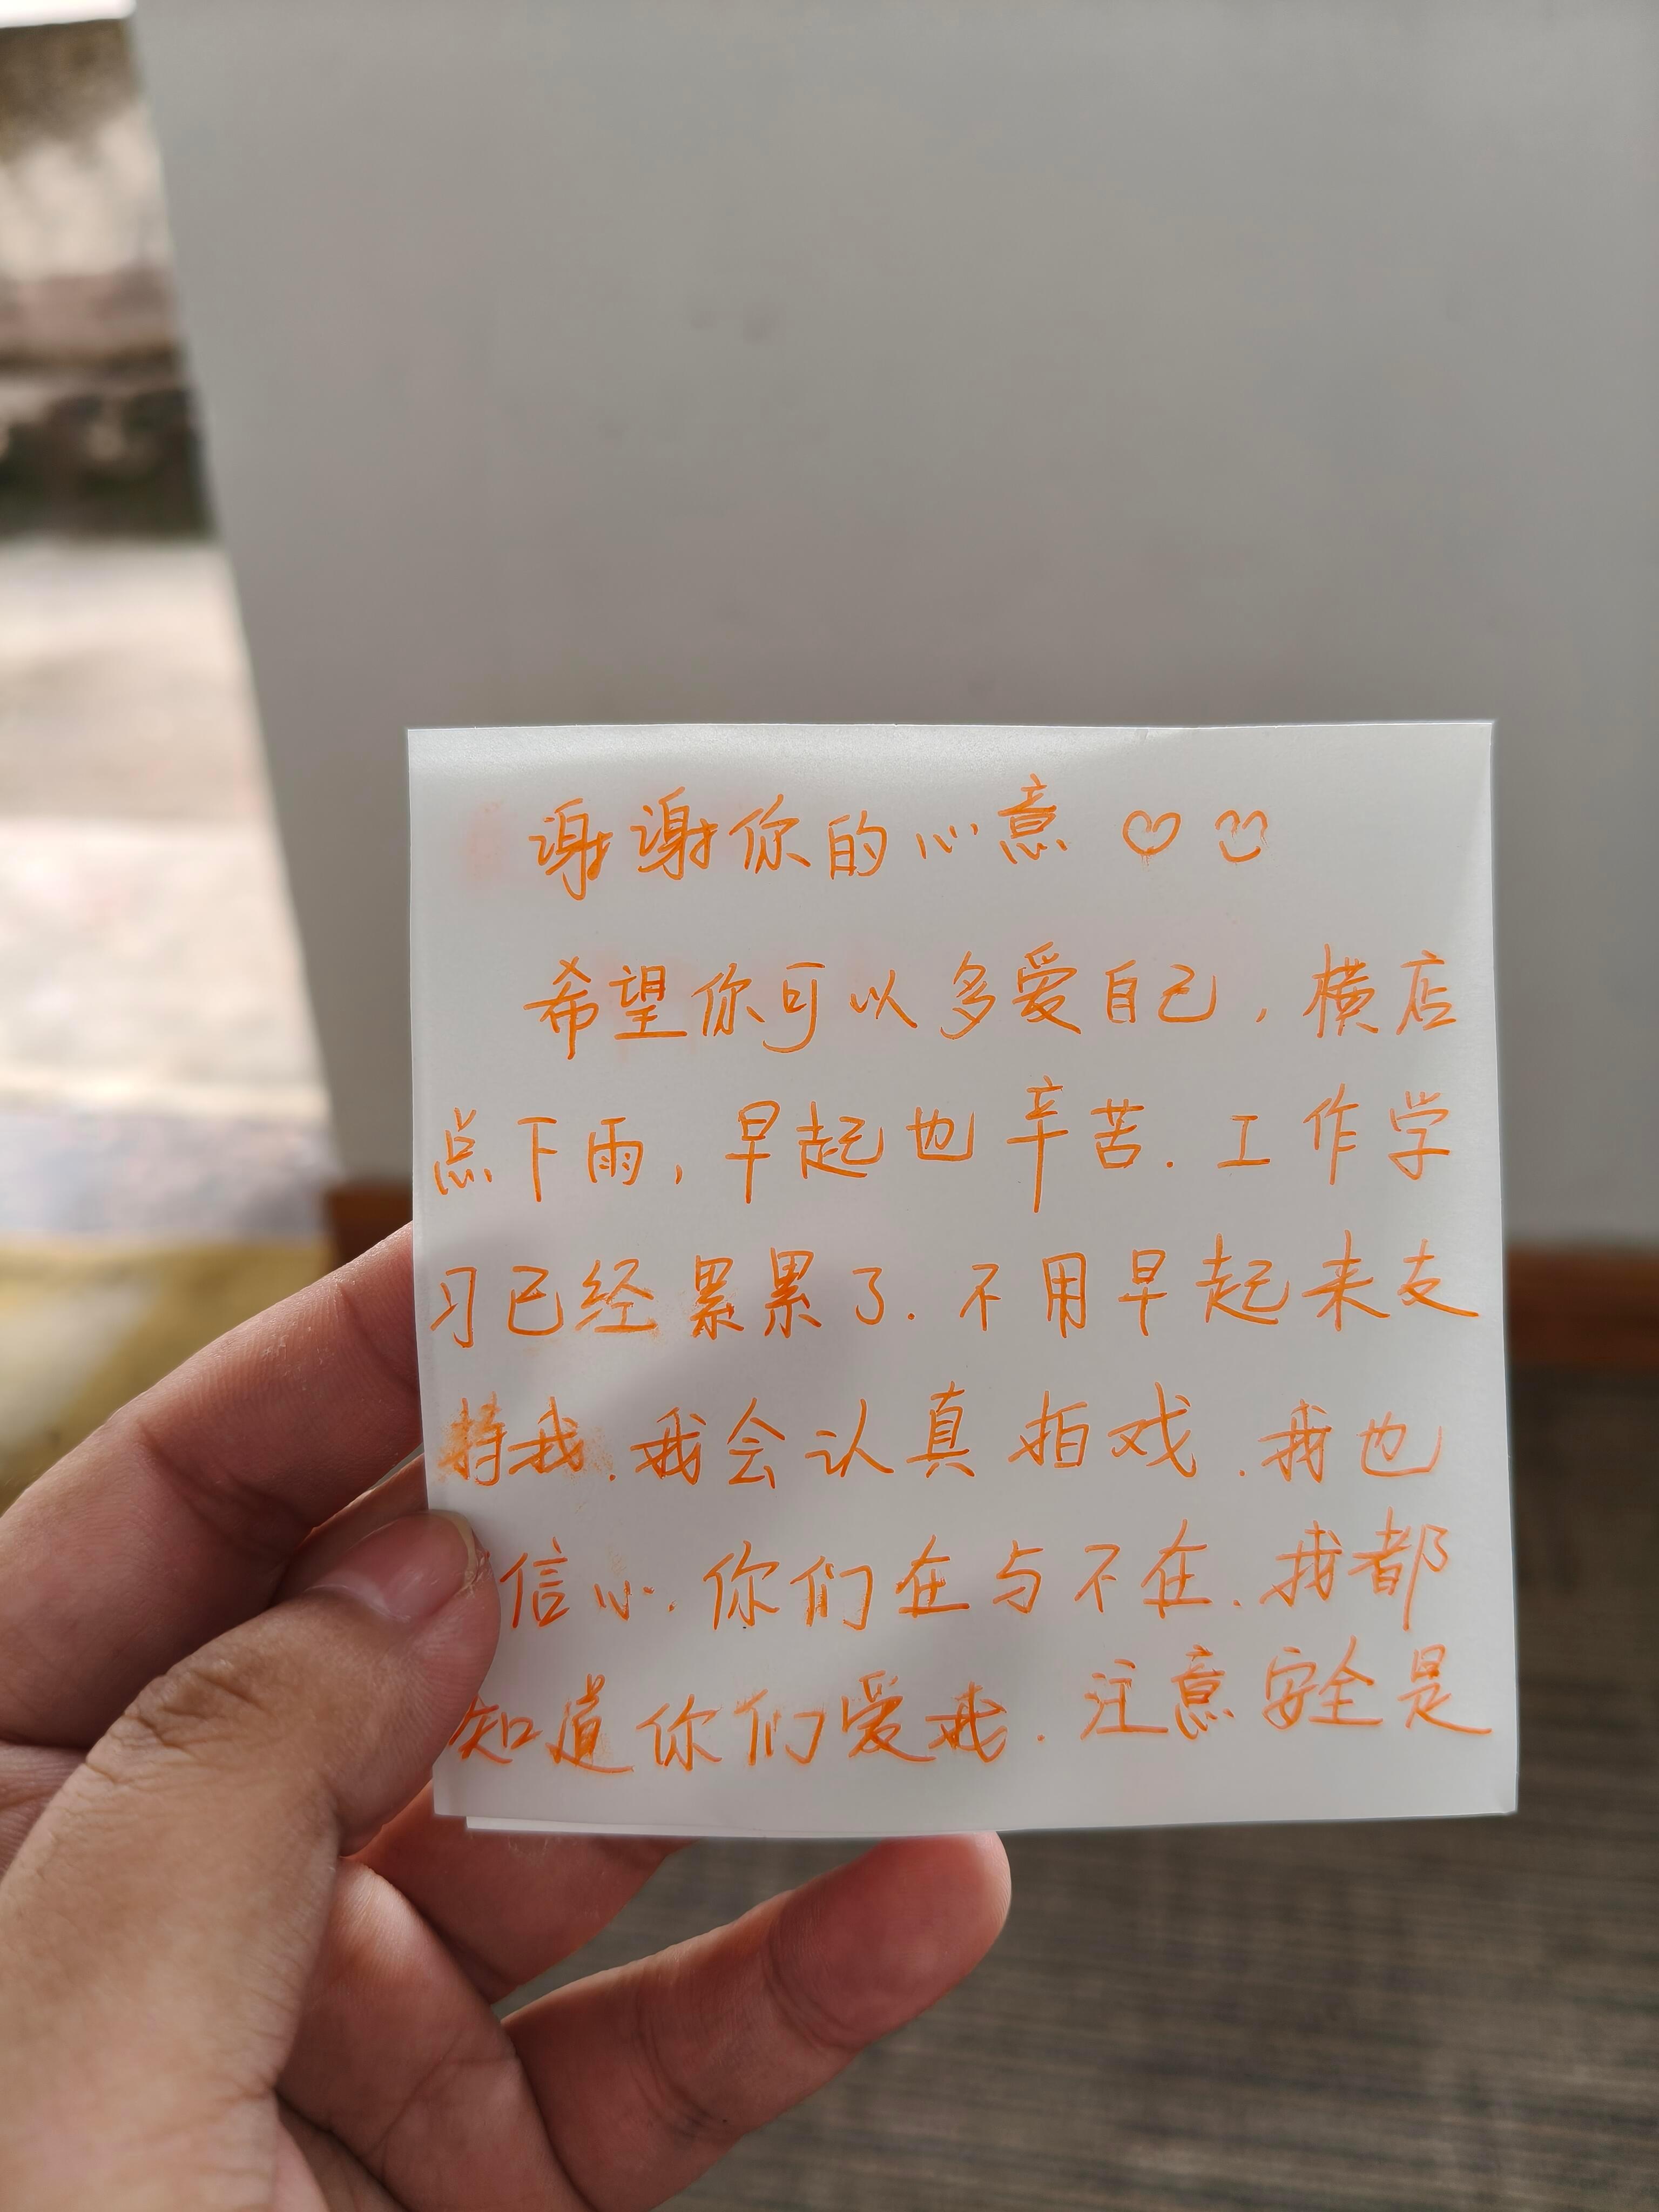 谢谢你的心意♡♡
希望你可以多爱自己,横店
点下雨,早起也辛苦.工作学
习已经累累了.不用早起来支
持我.我会认真拍戏.我也
信心.你们在与不在.我都
知道你们爱我.注意安全是